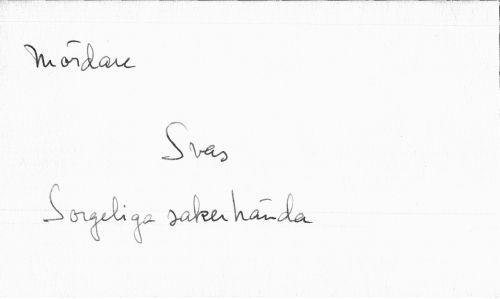 Mördare
Svas
Sorgeliga saker hända